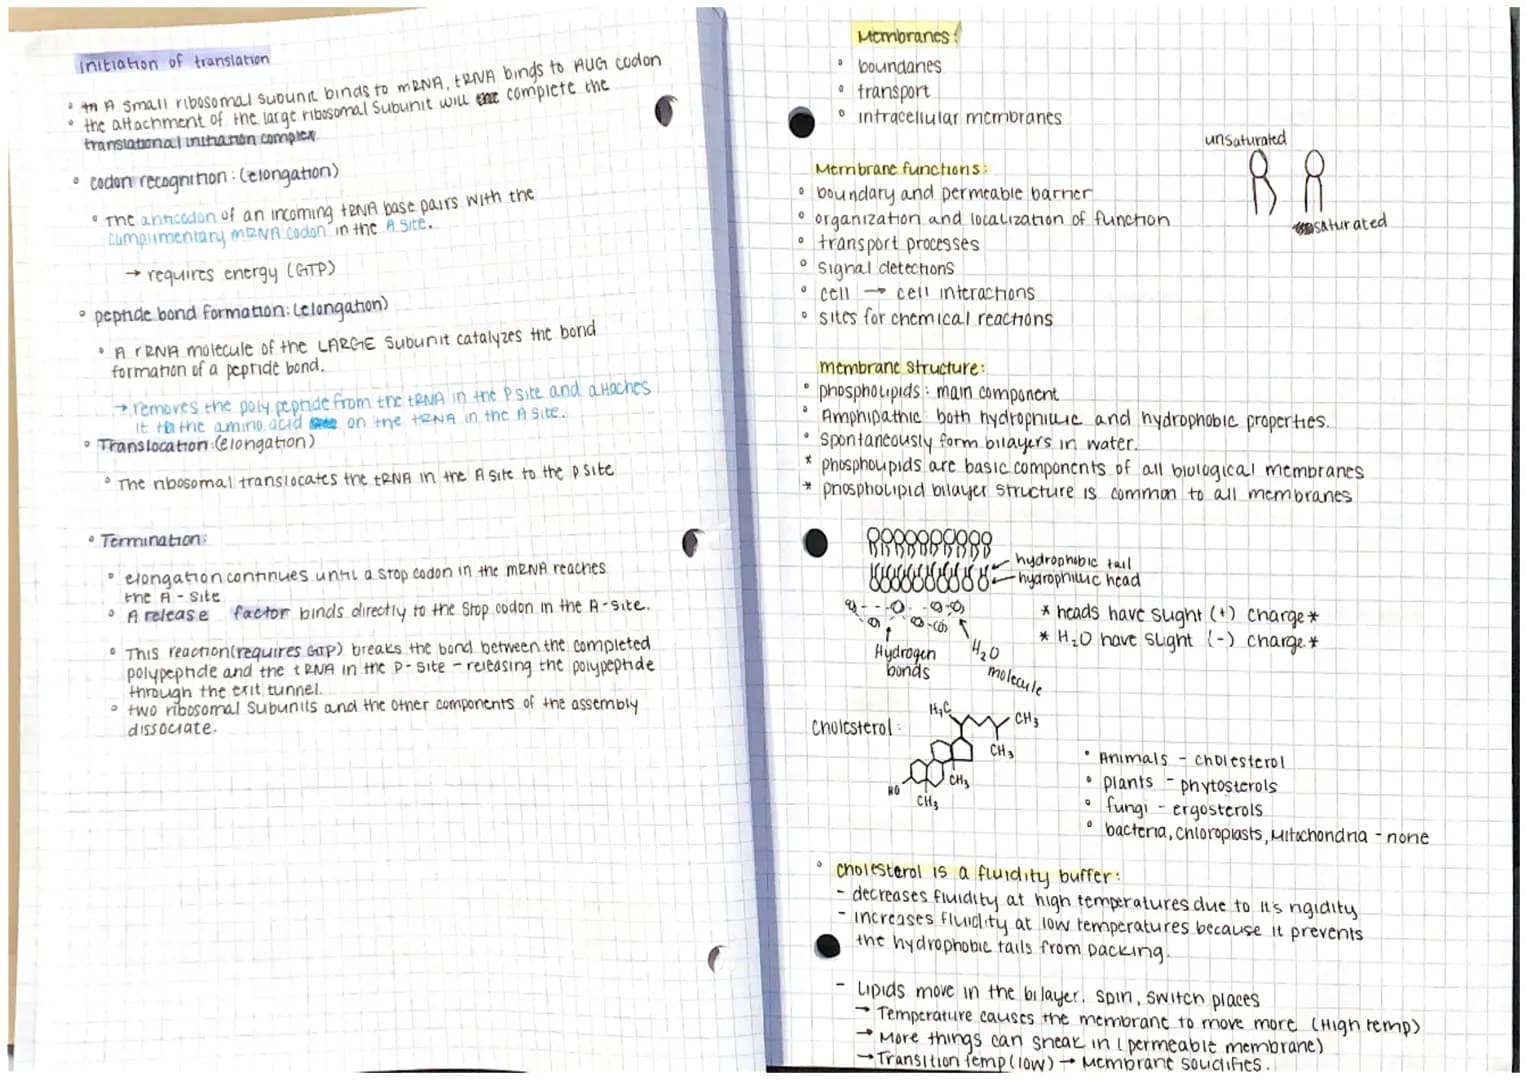 initiation of translation
A small ribosomal subunit binds to mRNA, tRNA binds to AUG codon
the attachment of the large ribosomal Subunit will complete the
translational initiation complex.
codon recognition: (elongation)
The anticodon of an incoming tRNA base pairs with the
complimentary mRNA codon in the A site.
→ requires energy (GTP)
peptide bond formation: (elongation)
A rRNA molecule of the LARGE Subunit catalyzes the bond
formation of a peptide bond.
→ removes the poly peptide from the tRNA in the P site and attaches
it to the amino acid on the tRNA in the A site.
Translocation: (elongation)
The ribosomal translocates the tRNA in the A site to the p site
Termination:
elongation continues until a stop codon in the mRNA reaches
the A - site
A release factor binds directly to the stop codon in the A-site.
This reaction (requires GTP) breaks the bond between the completed
polypeptide and the tRNA in the P-site - releasing the polypeptide
through the exit tunnel.
two ribosomal subunits and the other components of the assembly
dissociate.
Membranes:
boundaries
transport
intracellular membranes
unsaturated
saturated
Membrane functions:
boundary and permeable barrier
organization and localization of function
transport processes
signal detections
cell → cell interactions
sites for chemical reactions
membrane structure:
phospholipids: main component
Amphipathic: both hydrophillic and hydrophobic properties.
spontaneously form bilayers in water.
* phospholipids are basic components of all biological membranes
* phospholipid bilayer structure is common to all membranes
hydrophobic tail
hydrophillic head
* heads have slight (+) charge *
* H₂O have slight (-) charge *
Hydrogen
bonds
H₂O
molecule
Cholesterol:
H₃C
CH₃
CH₃
CH₃
HO
CH₃
Animals - cholesterol
plants - phytosterols
fungi - ergosterols
bacteria, chloroplasts, Mitochondria - none
cholesterol is a fluidity buffer:
- decreases fluidity at high temperatures due to it's rigidity
- increases fluidity at low temperatures because it prevents
the hydrophobic tails from packing.
- Lipids move in the bilayer, spin, switch places
→ Temperature causes the membrane to move more (High temp)
→ More things can sneak in (permeable membrane)
→ Transition temp (low) → Membrane solidifies.